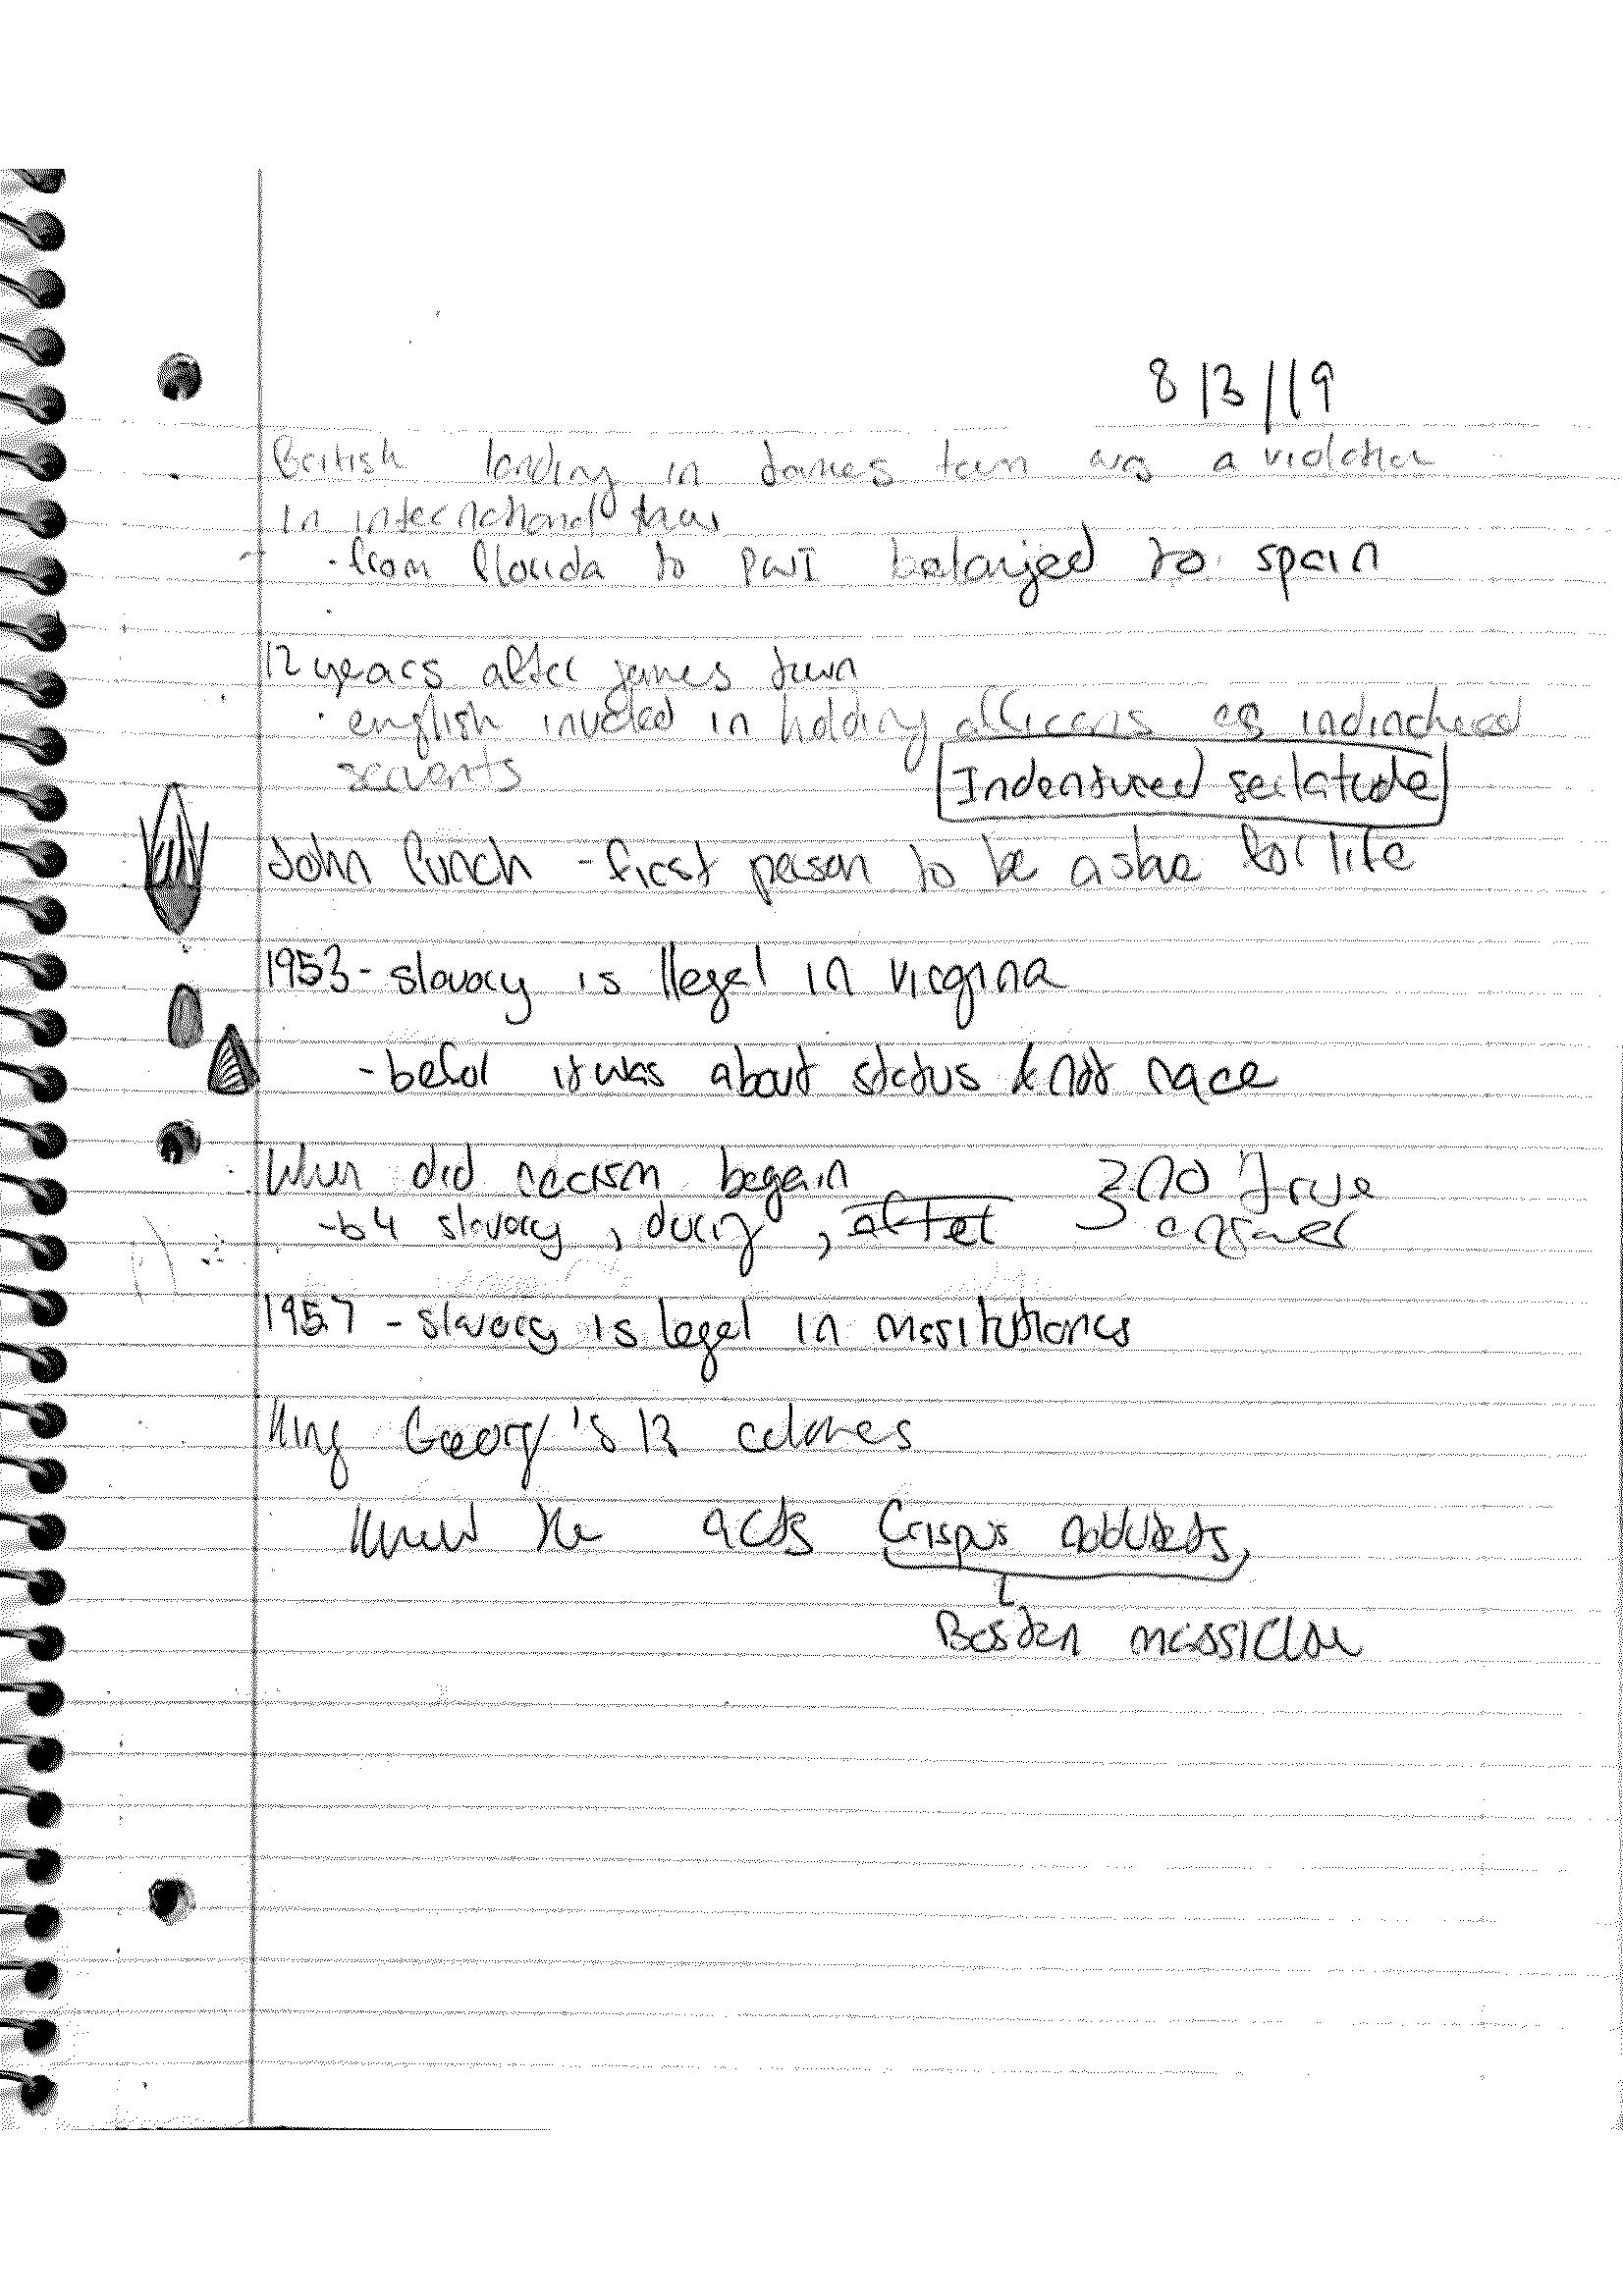 8/3/19
British landing in James town was a violation
in international law
· from Florida to belonged to spain
12 years after james town
· english in holding africans as
servants
Indentured
John Punch - first person to be a slave for life
1953 - slavory is llegal in Virgina
- befor it was about status & not race
When did racism begain
- b4 slavory, during, after } no true
answer
1957 - slavory is legal in
King Georgy's 13 colones
the acts Crispus
Boston